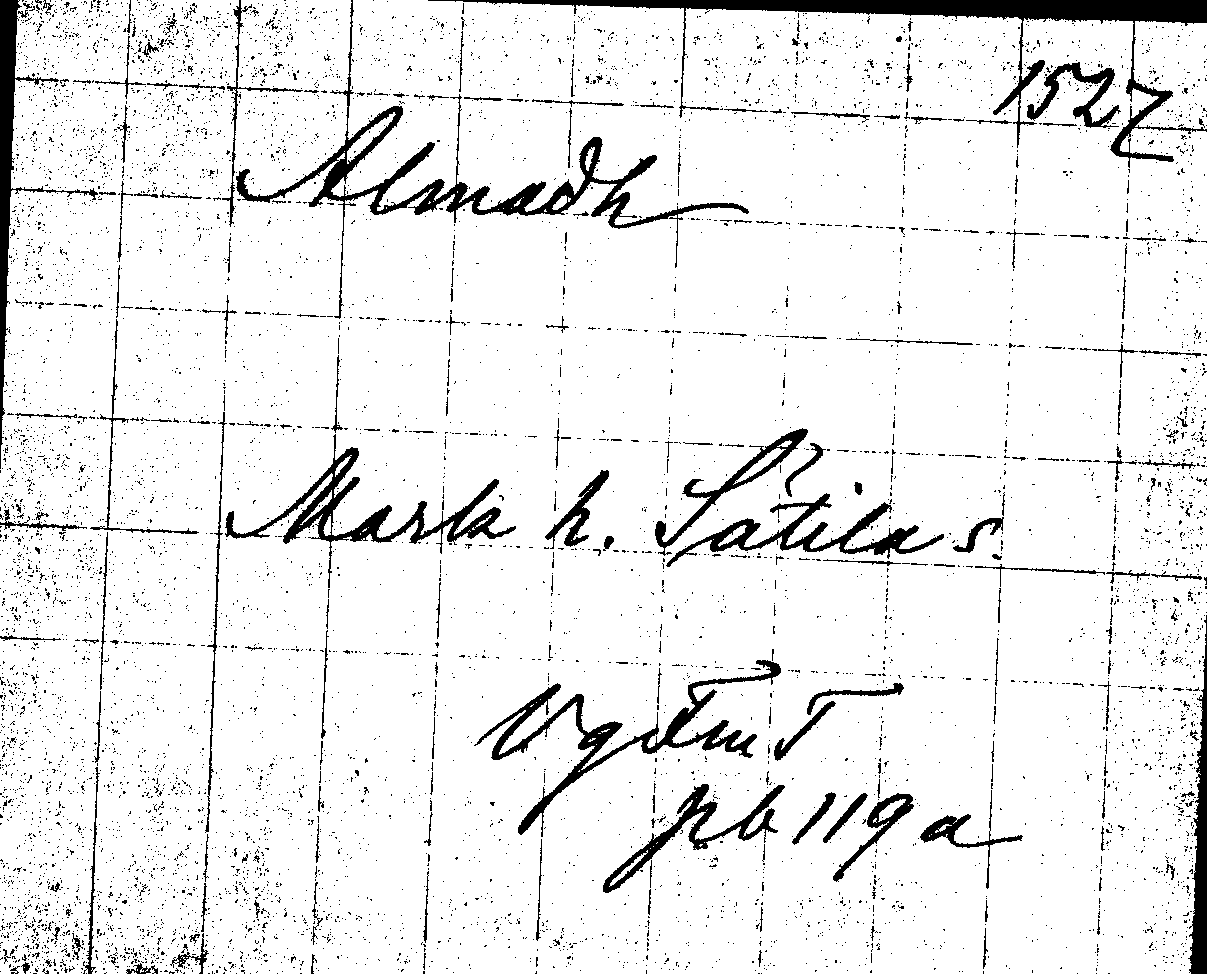 1527
Almadh
Mark h. Sätila s.
VgFmT
pb 119 a